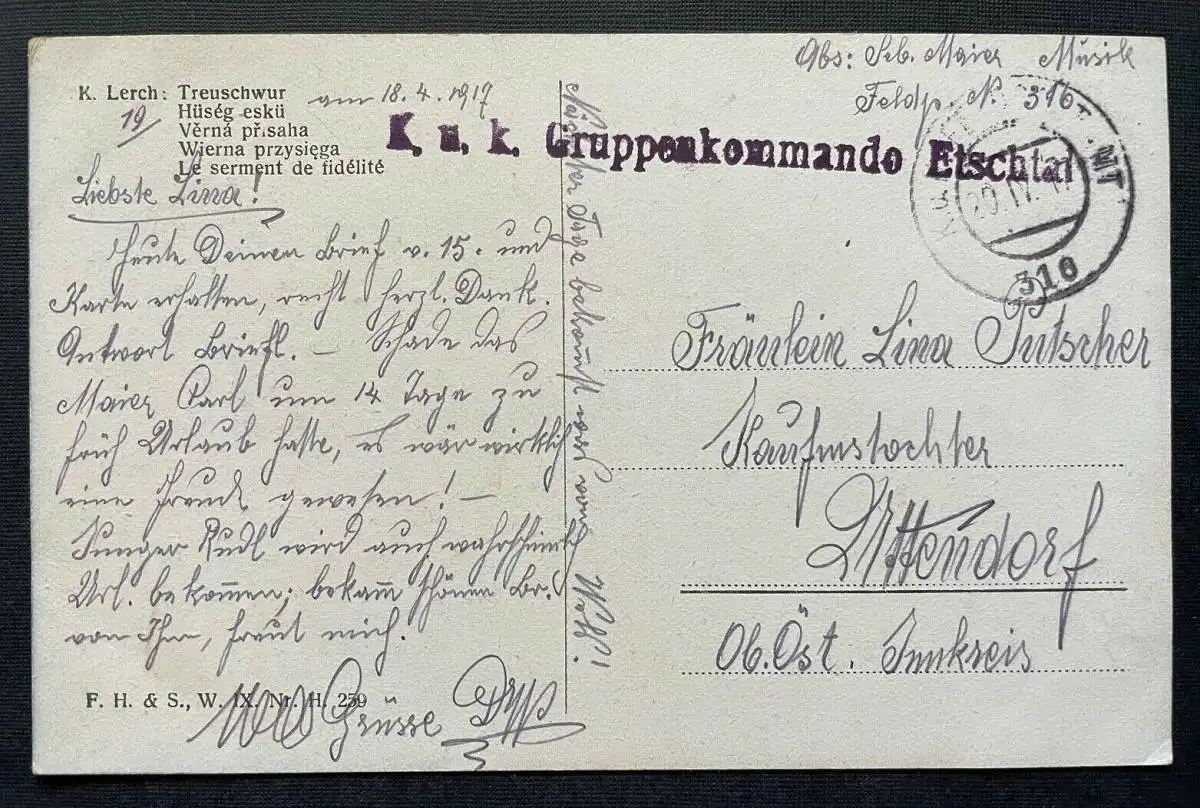 K. Lerch: Treuschwur
Hüség eskü
Věrná přísaha
Wierna przysięga
Le serment de fidélité
19/
am 18. 4. 1917
Liebste Lina!
Heute Deinen Brief v. 15. und
Karte erhalten, recht herzl. Dank.
Antwort briefl. — Schade das
Maier Carl um 14 Tage zu
früh Urlaub hatte, es wär wirklich
eine Freude gewesen! —
Rudl wird auch wahrscheinlich
Url. bekom̄en; bekam schönen Br.
von Ihm, freut mich.
Grüsse
F. H. & S., W. IX. Nr. H. 259
Tage
Abs: Seb. Maier Musik
Feldp. N. 316
K. u. k. Gruppenkommando Etschtal
20. IV. 17
316
Fräulein Lina Putscher
Kaufmstochter
Uttendorf
Ob. Öst. Innkreis